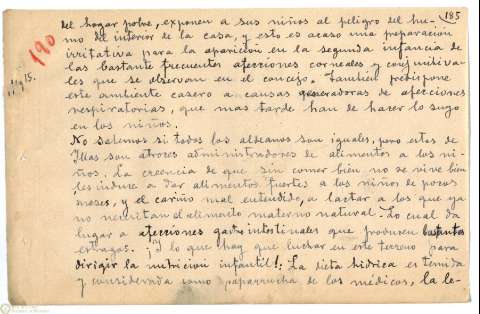 185
190
del hogar pobre, exponen a sus niños al peligro del hu-
mo del interior de la casa, y esto es acaso una preparación
irritativa para la aparición en la segunda infancia de
las bastante frecuentes afecciones corneales y conjuntiva-
les que se observan en el concejo. Tambien predispone
este ambiente casero a causas generadoras de afecciones
respiratorias, que mas tarde han de hacer lo suyo
en los niños.
No sabemos si todos los aldeanos son iguales, pero estos de
Illas son atroces administradores de alimentos a los ni-
ños. La creencia de que sin comer bien no se vive bien
les induce a dar alimentos fuertes a los niños de pocos
meses, y el cariño mal entendido, a lactar a los que ya
no necesitan el alimento materno natural. Lo cual da
lugar a afecciones gastro intestinales que producen bastantes
estragos. ¡Y lo que hay que luchar en este terreno para
dirigir la nutricion infantil!. La dieta hidrica es temida
y considerada como paparrucha de los médicos, la le-